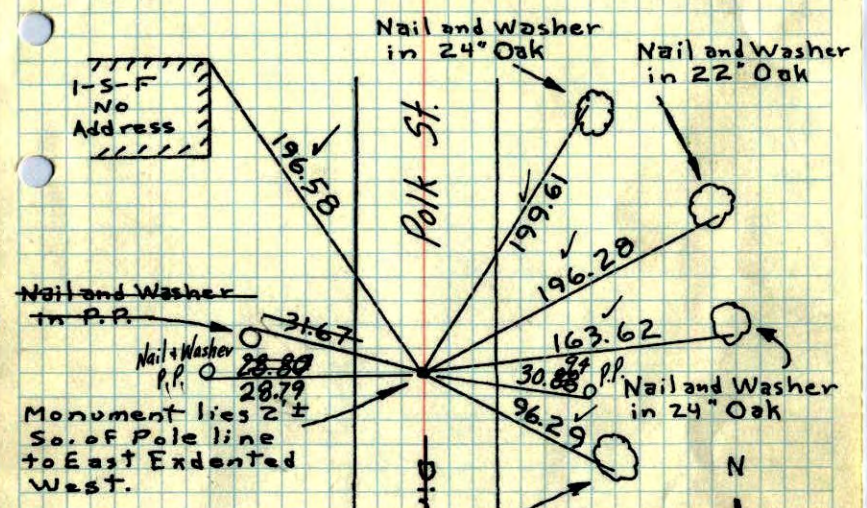 Nail and Washer
in 24" Oak
Nail and Washer
in 22" Oak
1-S-F
No
Address
Polk St.
196.58
199.61
196.28
Nail and Washer
in P.P.
31.67
163.62
Nail & Washer
P.P.
28.79
30.
94
P.P.
Nail and Washer
in 24" Oak
96.29
Monument lies 2'±
So. of Pole line
to East Exdented
West.
N